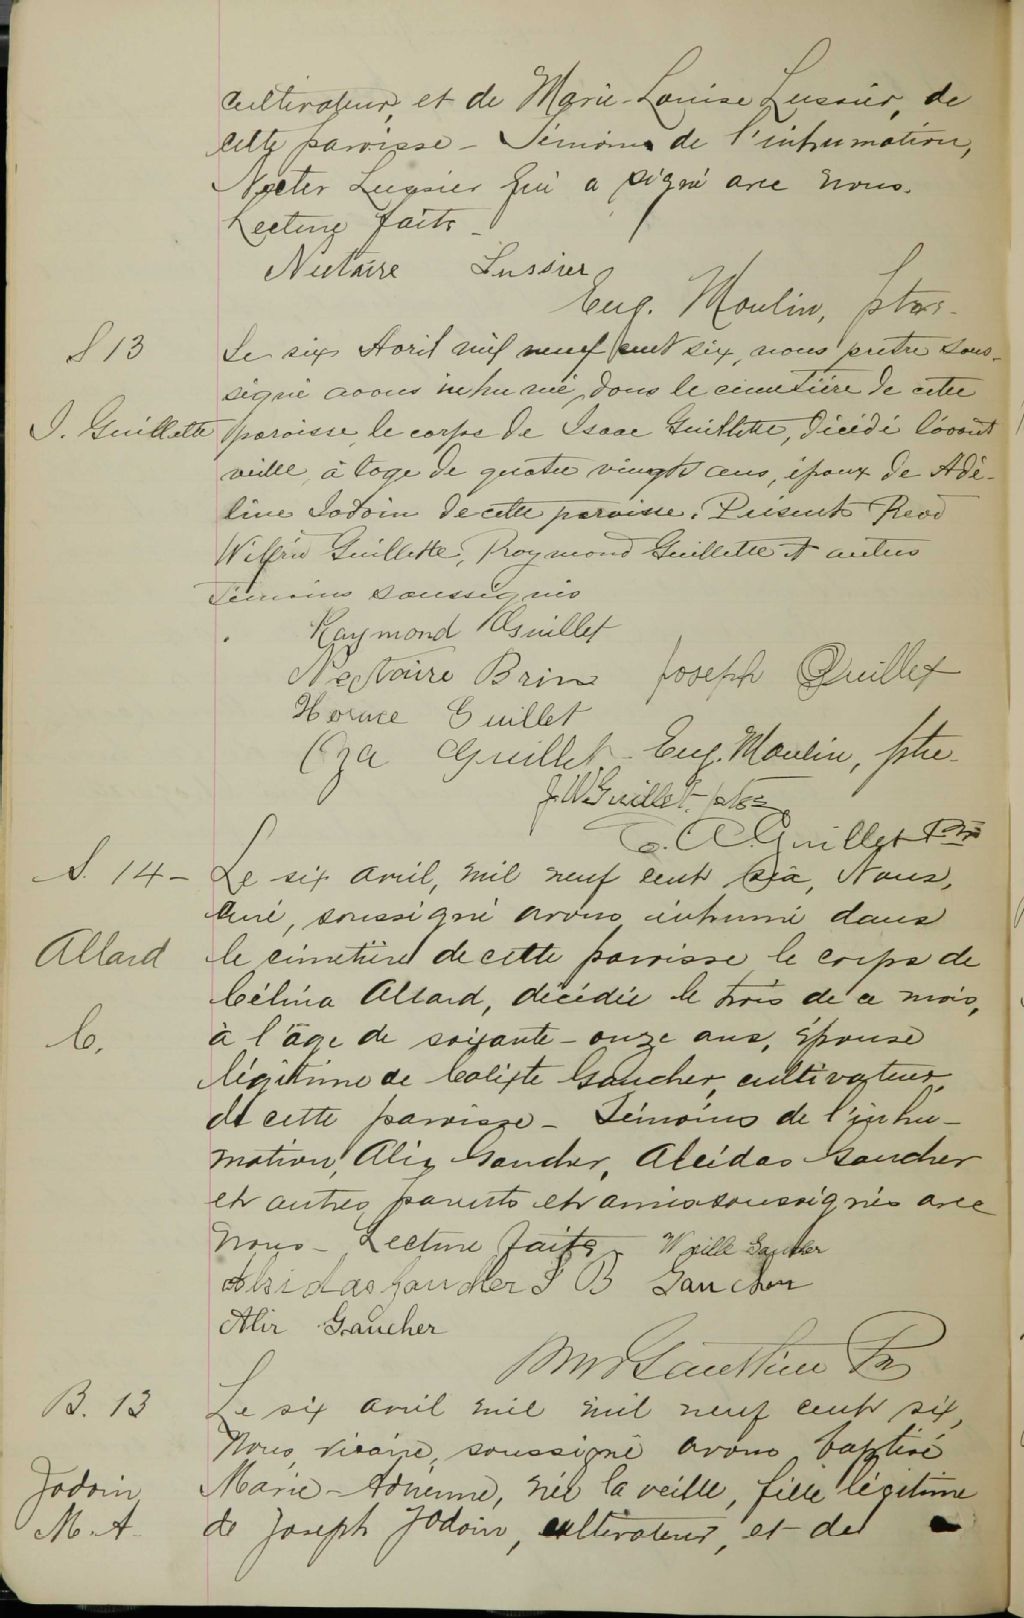 cultivateur, et de Marie-Louise Lussier, de
cette paroisse - Témoins de l'inhumation,
Necter Lussier qui a signé avec nous.
Lecture faite -
Nectaire Lussier
Eug. Moulin, ptre.
S 13
Le six Avril mil neuf cent six, nous prêtre sous-
signé avons inhumé, dans le cimetière de cette
I. Guillette
paroisse, le corps de Isaac Guillette, décédé l'avant
veille, à l'age de quatre vingts ans, époux de Adé-
line Jodoin de cette paroisse. Présents Revd
Wilfrid Guillette, Raymond Guillette et autres
témoins soussignés
Raymond Guillet
Nectaire Brin Joseph Guillet
Horace Guillet
Oza Guillet - Eug. Moulin, ptre
J. W. Guillet, ptre
A. Guillet Ptre
S. 14 -
Le six avril, mil neuf cent six, Nous,
curé, soussigné avons inhumé dans
Allard
le cimetière de cette paroisse le corps de
Célina Allard, décédée le trois de ce mois,
C.
à l'âge de soixante-onze ans, épouse
légitime de Calixte Gaucher, cultivateur,
de cette paroisse - Témoins de l'inhu-
mation, Alix Gaucher, Alcidas Gaucher
et autres parents et amis soussignés avec
nous - Lecture faite - Gaucher
Alsidas Gaucher J B Gaucher
Alir Gaucher
Gauthier Ptr
B. 13
Le six avril mil mil neuf cent six,
Nous, vicaire, soussigné avons baptisé
Jodoin
Marie-Adrienne, née la veille, fille légitime
M. A.
de Joseph Jodoin, cultivateur, et de